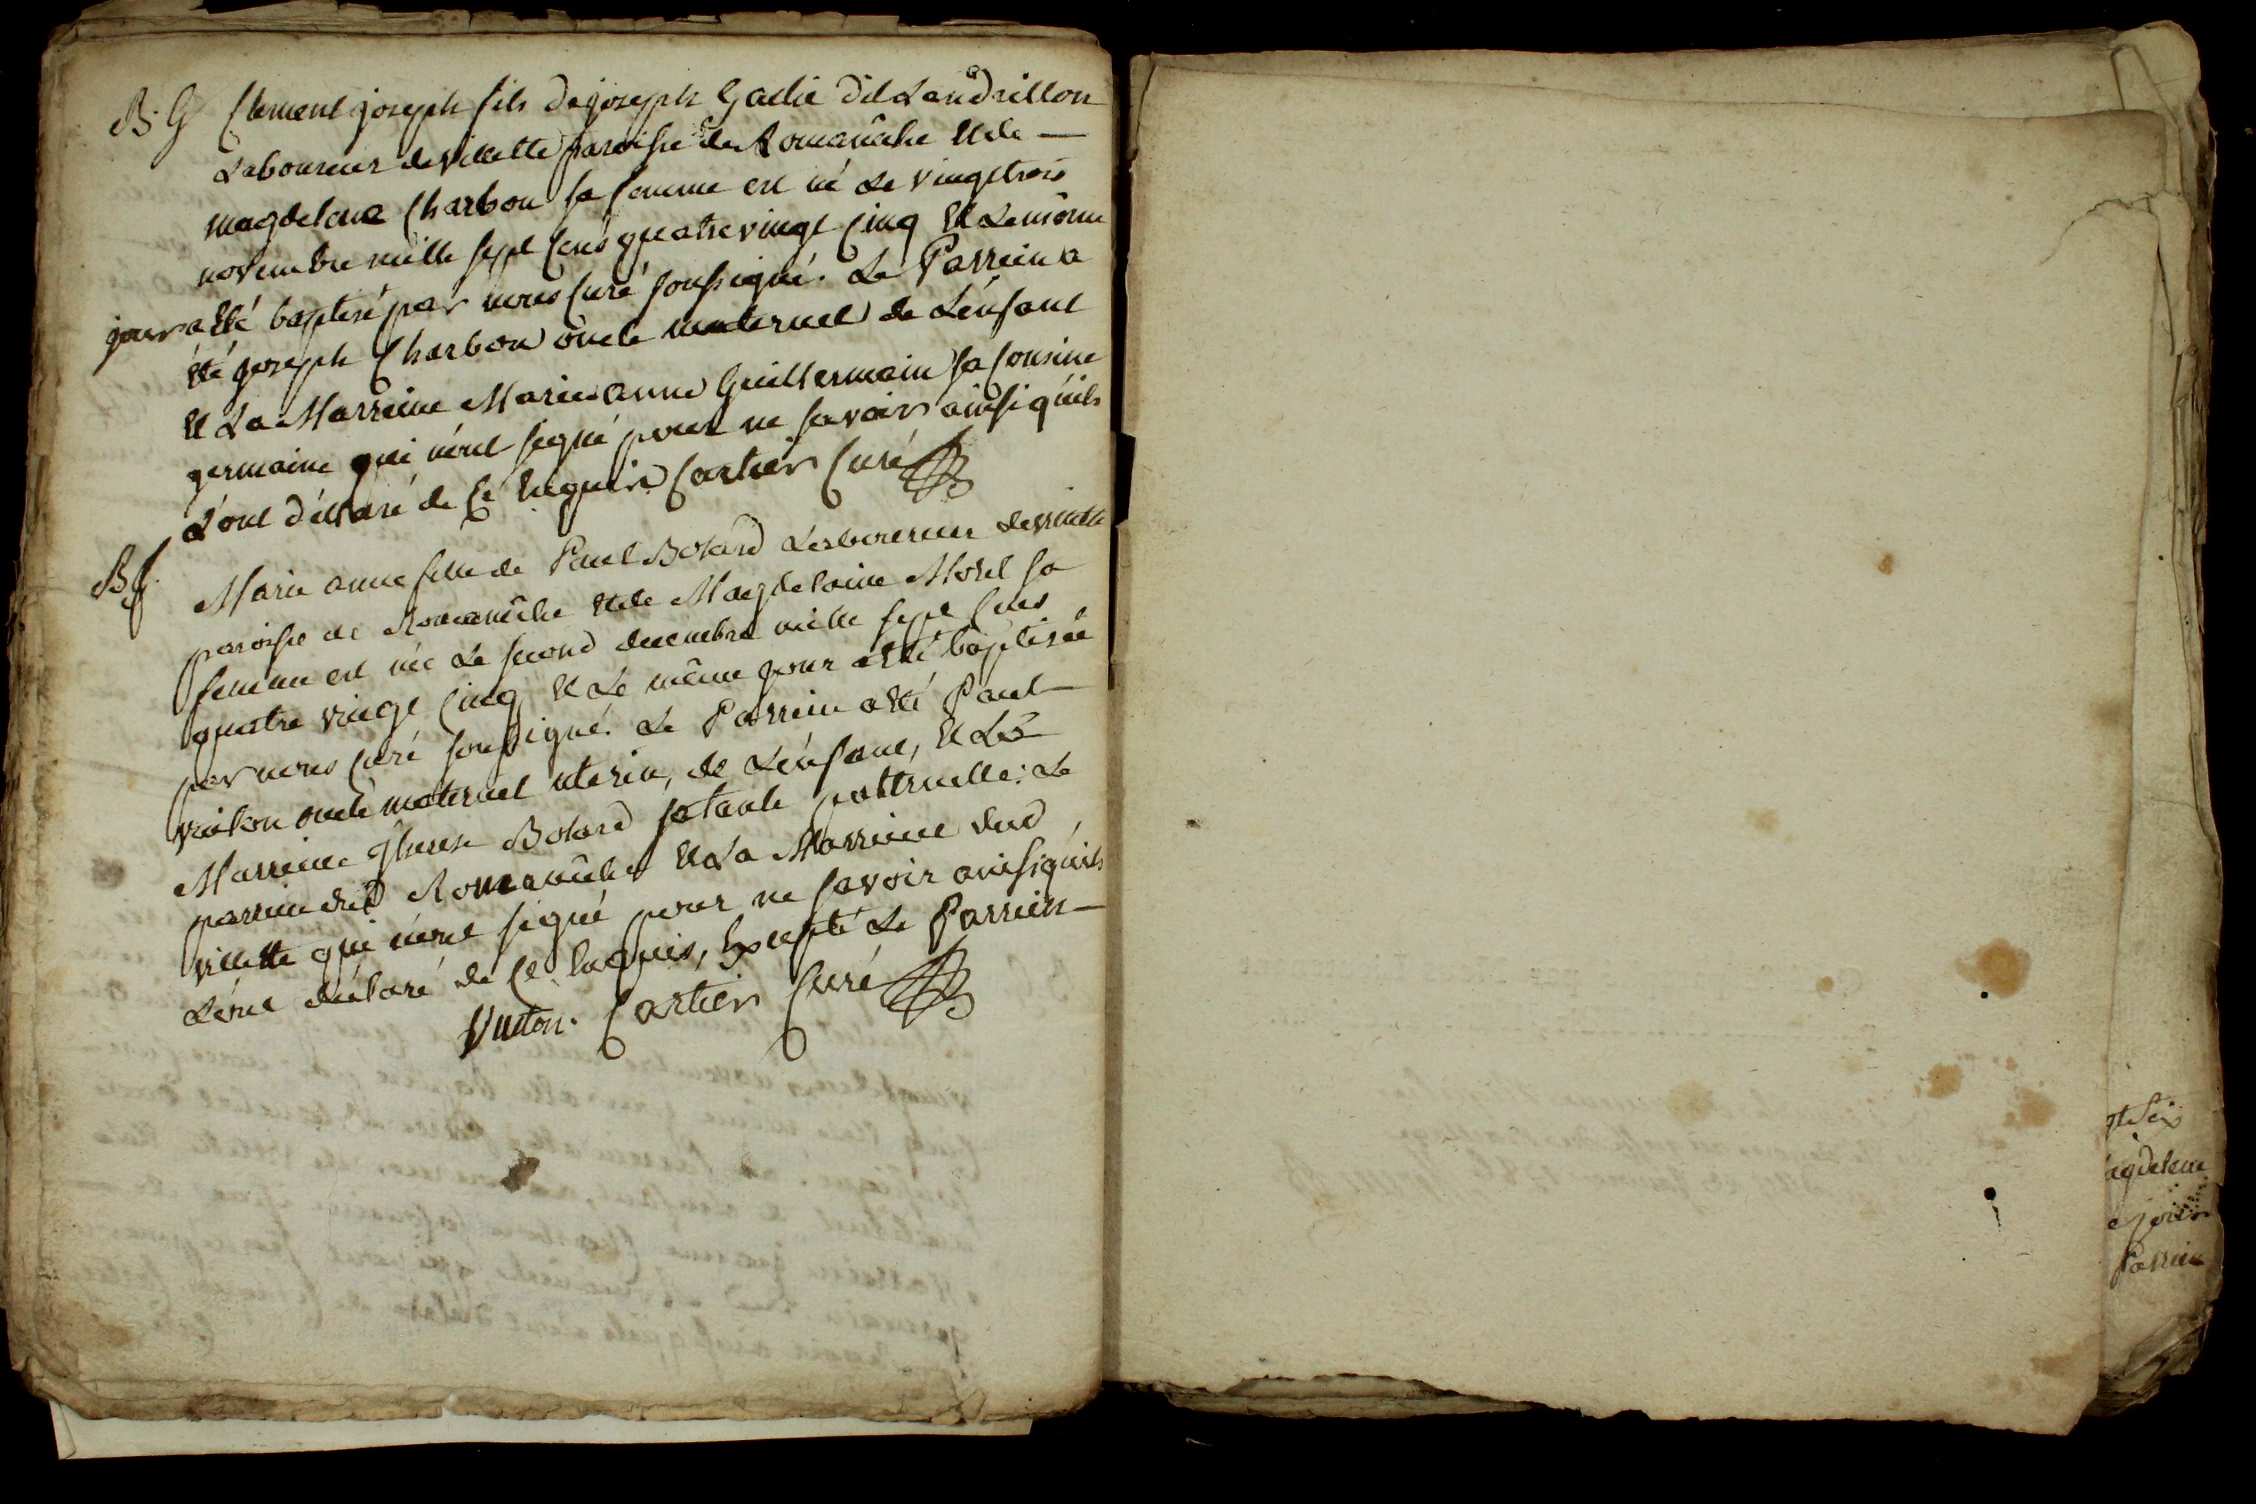 B: G Clement joseph fils de joseph Gadie dit Landrillon
Laboureur de villette paroisse de Romanêche et de
magdelene Charbon sa femme est né Le vingt trois
novembre mille sept Cens quatre vingt Cinq et Le même
jour a èté baptisé par nous Curé soussigné. Le Parrein a
èté joseph Charbon oncle maternel de L'enfant
et La Marreine Marie anne Guillermain sa Cousine
germaine qui n'ont signé pour ne savoir ainsi qu'ils
L'ont déclaré de Ce Enquis Cartier Curé
B f. Marie anne fille de Paul Bolard Laboureur de villette
paroisse de Romanêche et de Magdelaine Morel sa
femme est née Le second decembre mille sept Cens
quatre vingt Cinq et Le même jour a èté baptisée
par nous Curé soussigné. Le Parrein a èté Paul
vuiton oncle maternel uterin, de L'enfant, et La
Marreine therese Bolard sa tante patternelle: Le
parrein dud Romanêche et La Marreine dud
villette qui n'ont signé pour ne savoir ainsi qu'ils
L'ont déclaré de Ce Enquis, Excepté Le Parrein
Vuiton. Cartier Curé
gt Six
agdelene
Parrein